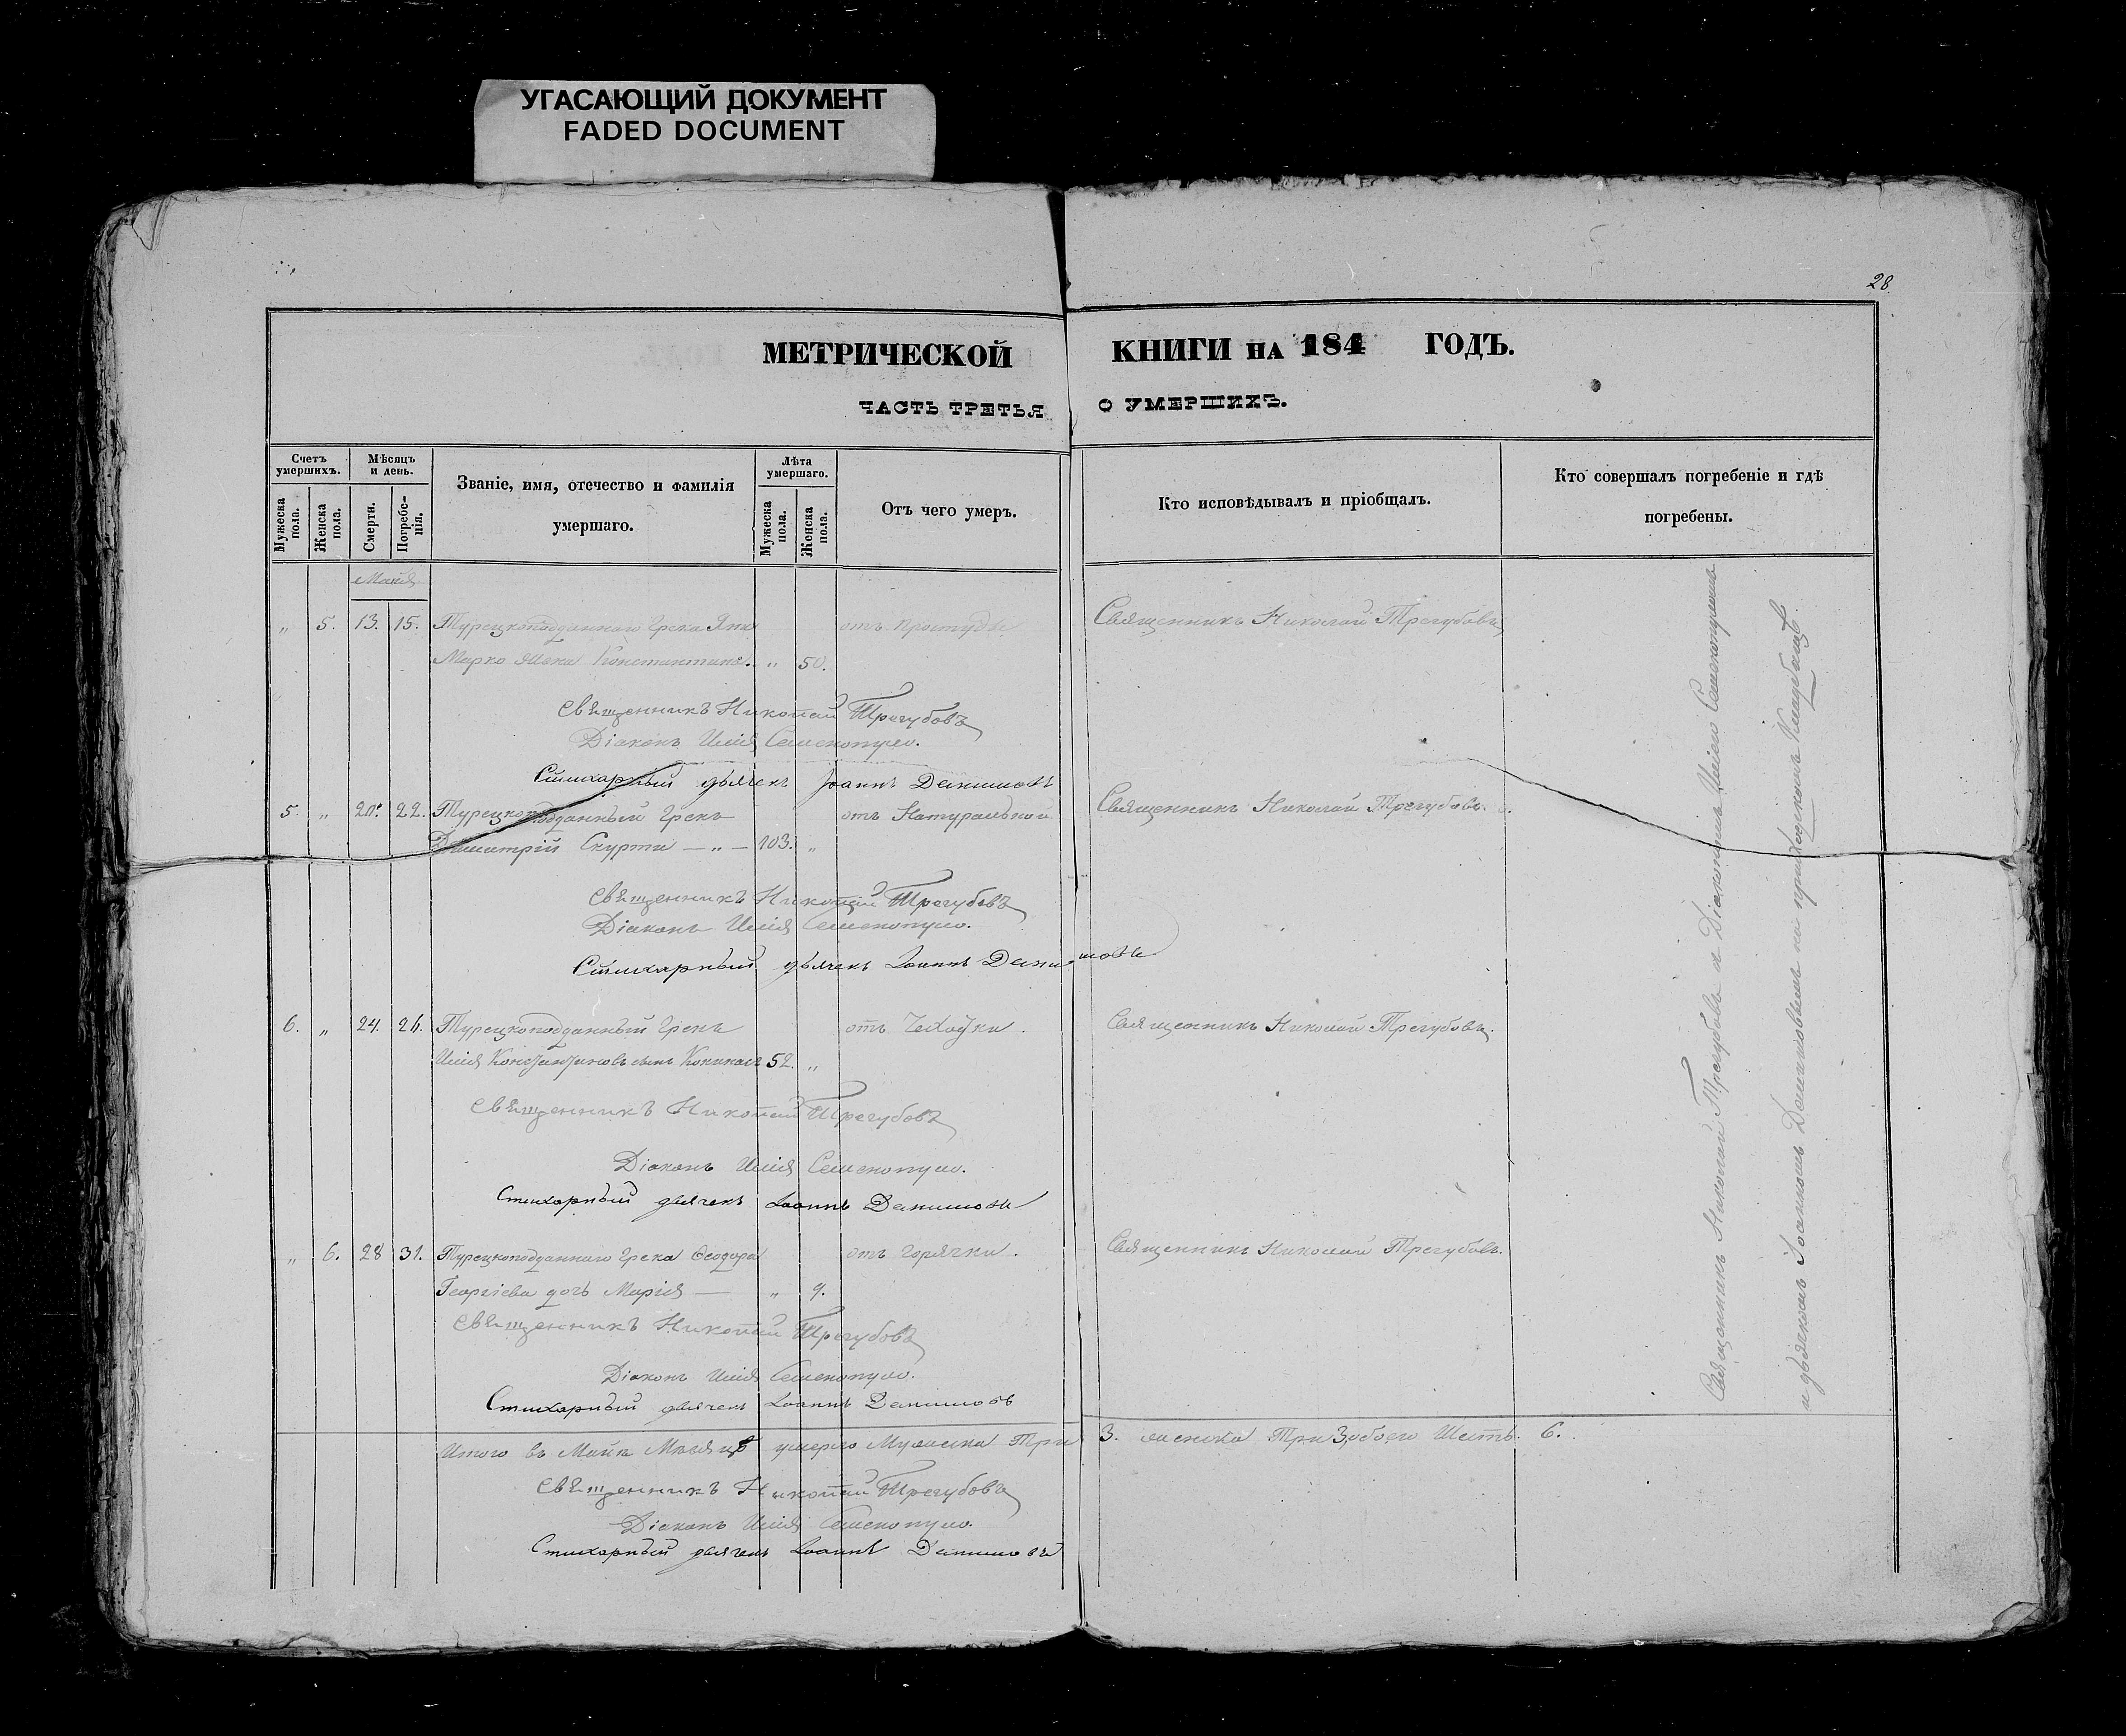 УГАСАЮЩИЙ ДОКУМЕНТ
FADED DOCUMENT
28
МЕТРИЧЕСКОЙ КНИГИ НА 184 ГОДЪ.
ЧАСТЬ ТРЕТЬЯ О УМЕРШИХЪ.
Счетъ умершихъ.
Мужеска пола.
Женска пола.
Мѣсяцъ и день.
Смерти.
Погребенія.
Званіе, имя, отечество и фамилія
умершаго.
Лѣта умершаго.
Мужеска пола.
Женска пола.
Отъ чего умеръ.
Кто исповѣдывалъ и пріобщалъ.
Кто совершалъ погребеніе и гдѣ
погребены.
Маія
„ 5. 13. 15. Турецкоподданнаго Грека Яни отъ простуды Священникъ Николай Трегубовъ
Марко жена Константина. „ 50.
Священникъ Николай Трегубовъ
Діаконъ Илія Семенопуло.
Стихарный дьячекъ Іоаннъ Данишовъ
5. „ 20. 22. Турецкоподданный Грекъ отъ Натуральной Священникъ Николай Трегубовъ.
Димитрій Скурти — „ — 103. „
Священникъ Николай Трегубовъ
Діаконъ Илія Семенопуло.
Стихарный дьячекъ Іоаннъ Данишовъ
6. „ 24. 26. Турецкоподданный Грекъ отъ Чехотки. Священникъ Николай Трегубовъ.
Илія Константиновъ сынъ 52. „
Священникъ Николай Трегубовъ
Діаконъ Илія Семенопуло.
Стихарный дьячекъ Іоаннъ Данишовъ
„ 6. 28 31. Турецкоподданнаго Грека Ѳеодора отъ горячки. Священникъ Николай Трегубовъ.
Георгіева дочь Марія — „ 9.
Священникъ Николай Трегубовъ
Діаконъ Илія Семенопуло.
Стихарный дьячекъ Іоаннъ Данишовъ
Итого въ Маіѣ Мѣсяцѣ умерло Мужеска Три 3. женска Три 3, обоего Шесть. 6.
Священникъ Николай Трегубовъ
Діаконъ Илія Семенопуло.
Стихарный дьячекъ Іоаннъ Данишовъ
Священникъ Николай Трегубовъ и Діакономъ Иліею Семенопуломъ
и дьячкомъ Іоанномъ Данишовымъ на приходскомъ Кладбищѣ.